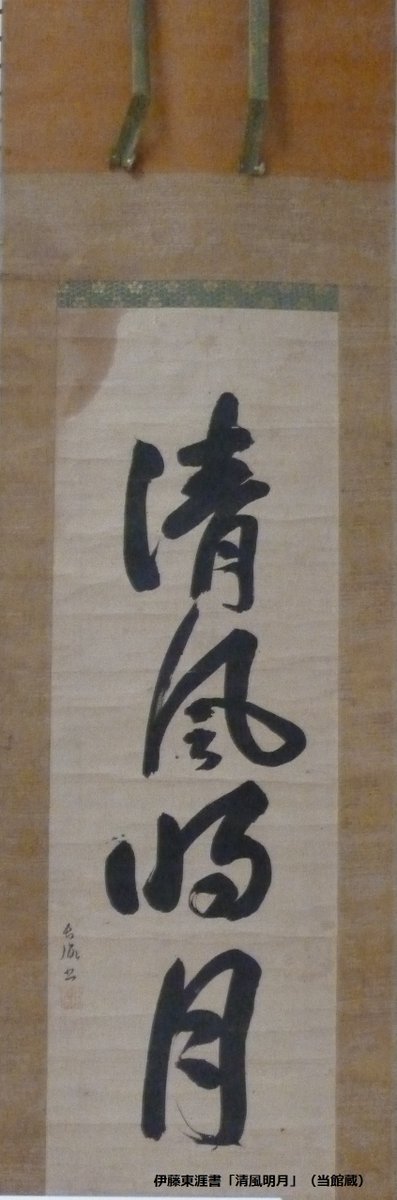 清風明月
伊藤東涯書「清風明月」(当館蔵)